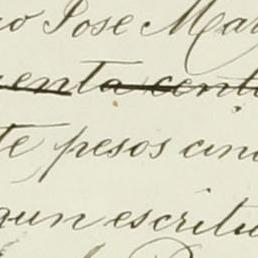 o Jose Ma
enta centa
te pesos cin
gun escritu